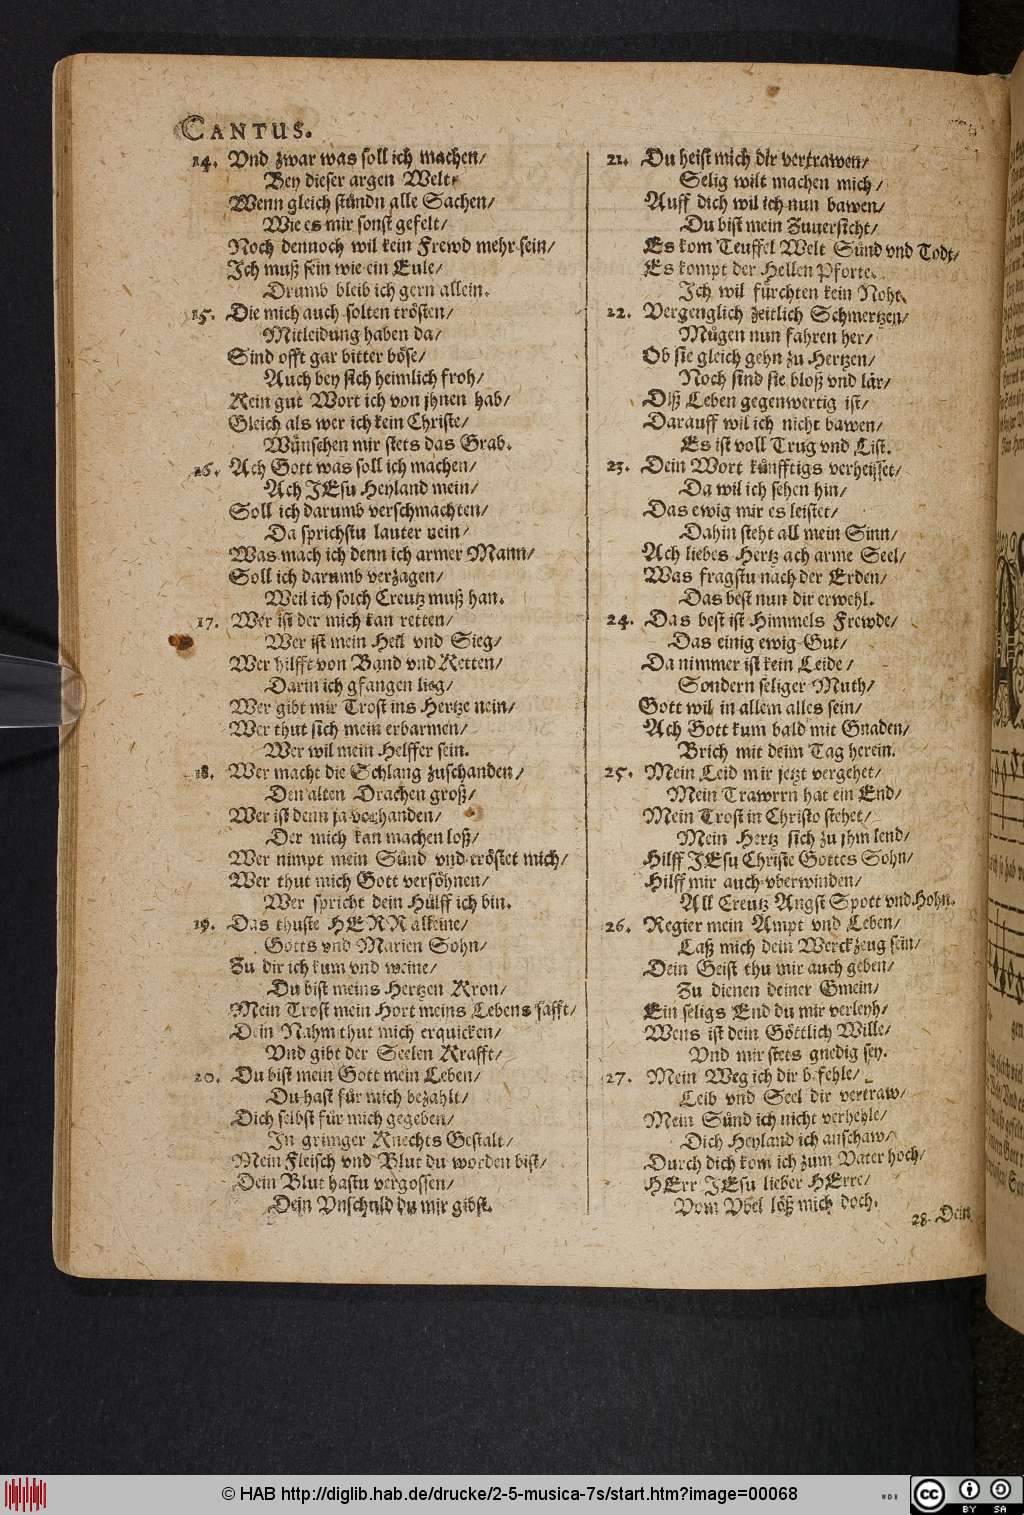 CANTUS.
14. Vnd zwar was soll ich machen/
Bey dieser argen Welt/
Wenn gleich stůndn alle Sachen/
Wie es mir sonst gefelt/
Noch dennoch wil kein Frewd mehr sein/
Ich muß sein wie ein Eule/
Drumb bleib ich gern allein.
15. Die mich auch solten trösten/
Mitleidung haben da/
Sind offt gar bitter böse/
Auch bey sich heimlich froh/
Kein gut Wort ich von jhnen hab/
Gleich als wer ich kein Christe/
Wünschen mir stets das Grab.
16. Ach Gott was soll ich machen/
Ach JEsu Heyland mein/
Soll ich darumb verschmachten/
Da sprichstu lauter nein/
Was mach ich denn ich armer Mann/
Soll ich darumb verzagen/
Weil ich solch Creutz muß han.
17. Wer ist der mich kan retten/
Wer ist mein Heil vnd Sieg/
Wer hilfft von Band vnd Ketten/
Darin ich gfangen lieg/
Wer gibt mir Trost ins Hertze nein/
Wer thut sich mein erbarmen/
Wer wil mein Helffer sein.
18. Wer macht die Schlang zuschanden/
Den alten Drachen groß/
Wer ist denn ja vorhanden/
Der mich kan machen loß/
Wer nimpt mein Sünd vnd tröstet mich/
Wer thut mich Gott versöhnen/
Wer spricht dein Hülff ich bin.
19. Das thuste HERR alleine/
Gotts vnd Marien Sohn/
Zu dir ich kum vnd weine/
Du bist meins Hertzen Kron/
Mein Trost mein Hort meins Lebens safft/
Dein Nahm thut mich erquicken/
Vnd gibt der Seelen Krafft/
20. Du bist mein Gott mein Leben/
Du hast für mich bezahlt/
Dich selbst für mich gegeben/
In grimger Knechts Gestalt/
Mein Fleisch vnd Blut du worden bist/
Dein Blut hastu vergossen/
Dein Vnschuld du mir gibst.
21. Du heist mich dir vertrawen/
Selig wilt machen mich/
Auff dich wil ich nun bawen/
Du bist mein Zuuersicht/
Es kom Teuffel Welt Sünd vnd Todt/
Es kompt der Hellen Pforte.
Ich wil fürchten kein Noht.
22. Vergenglich zeitlich Schmertzen/
Mügen nun fahren her/
Ob sie gleich gehn zu Hertzen/
Noch sind sie bloß vnd lär/
Diß Leben gegenwertig ist/
Darauff wil ich nicht bawen/
Es ist voll Trug vnd List.
23. Dein Wort künfftigs verheisset/
Da wil ich sehen hin/
Das ewig mir es leistet/
Dahin steht all mein Sinn/
Ach liebes Hertz ach arme Seel/
Was fragstu nach der Erden/
Das best nun dir erwehl.
24. Das best ist Himmels Frewde/
Das einig ewig Gut/
Da nimmer ist kein Leide/
Sondern seliger Muth/
Gott wil in allem alles sein/
Ach Gott kum bald mit Gnaden/
Brich mit deim Tag herein.
25. Mein Leid mir jetzt vergehet/
Mein Trawrrn hat ein End/
Mein Trost in Christo stehet/
Mein Hertz sich zu jhm lend/
Hilff JEsu Christe Gottes Sohn/
Hilff mir auch vberwinden/
All Creutz Angst Spott vnd Hohn.
26. Regier mein Ampt vnd Leben/
Laß mich dein Werckzeug sein/
Dein Geist thu mir auch geben/
Zu dienen deiner Gmein/
Ein seligs End du mir verleyh/
Wens ist dein Göttlich Wille/
Vnd mir stets gnedig sey.
27. Mein Weg ich dir befehle/
Leib vnd Seel dir vertraw/
Mein Sünd ich nicht verhehle/
Dich Heyland ich anschaw/
Durch dich kom ich zum Vater hoch/
HErr JEsu lieber HErre/
Vom Vbel löß mich doch.
28. Dein
© HAB http://diglib.hab.de/drucke/2-5-musica-7s/start.htm?image=00068
WDB
CC
BY SA